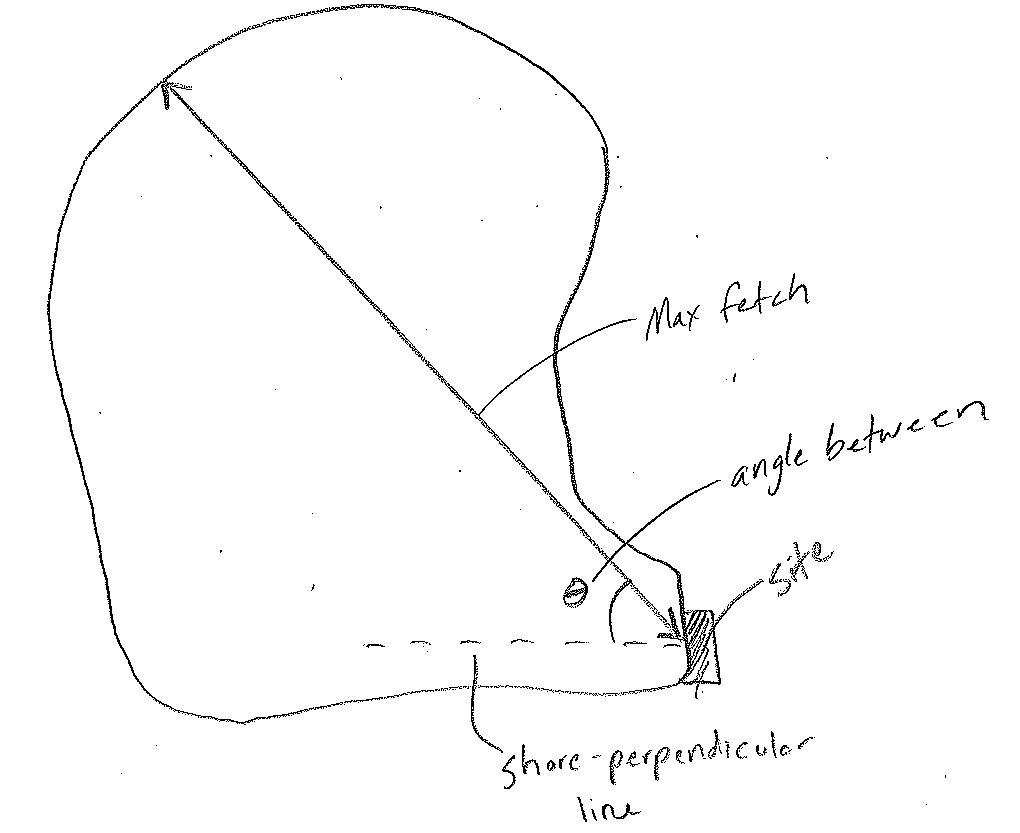 Max fetch
angle between
θ
site
shore-perpendicular
line